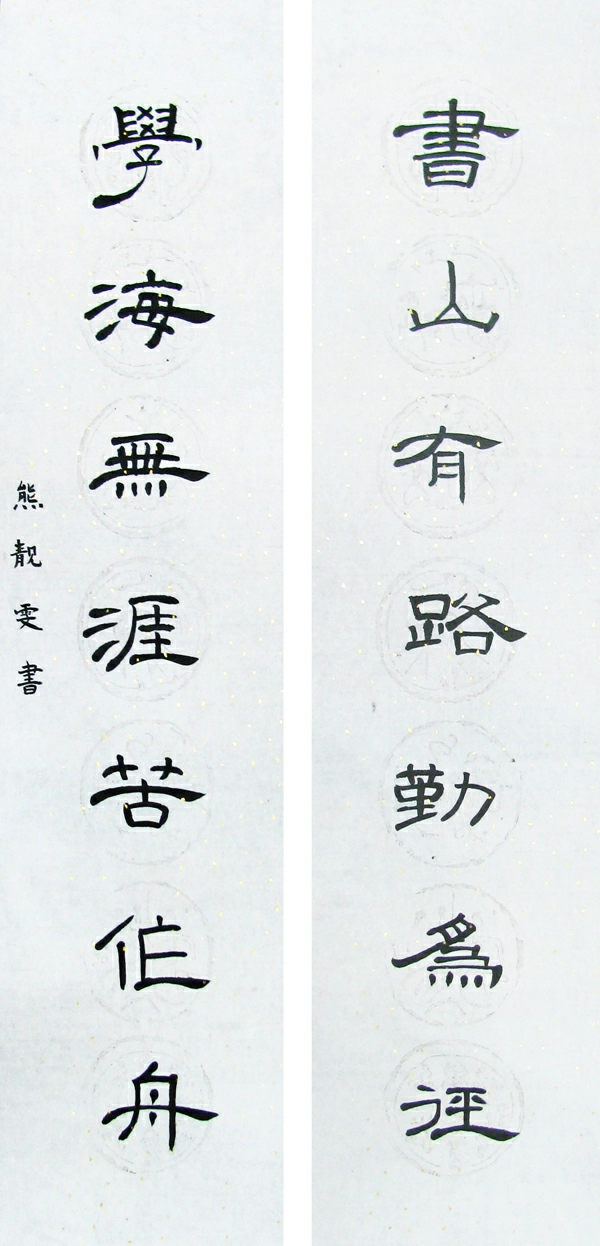 書山有路勤為徑
學海無涯苦作舟
熊靚雯書